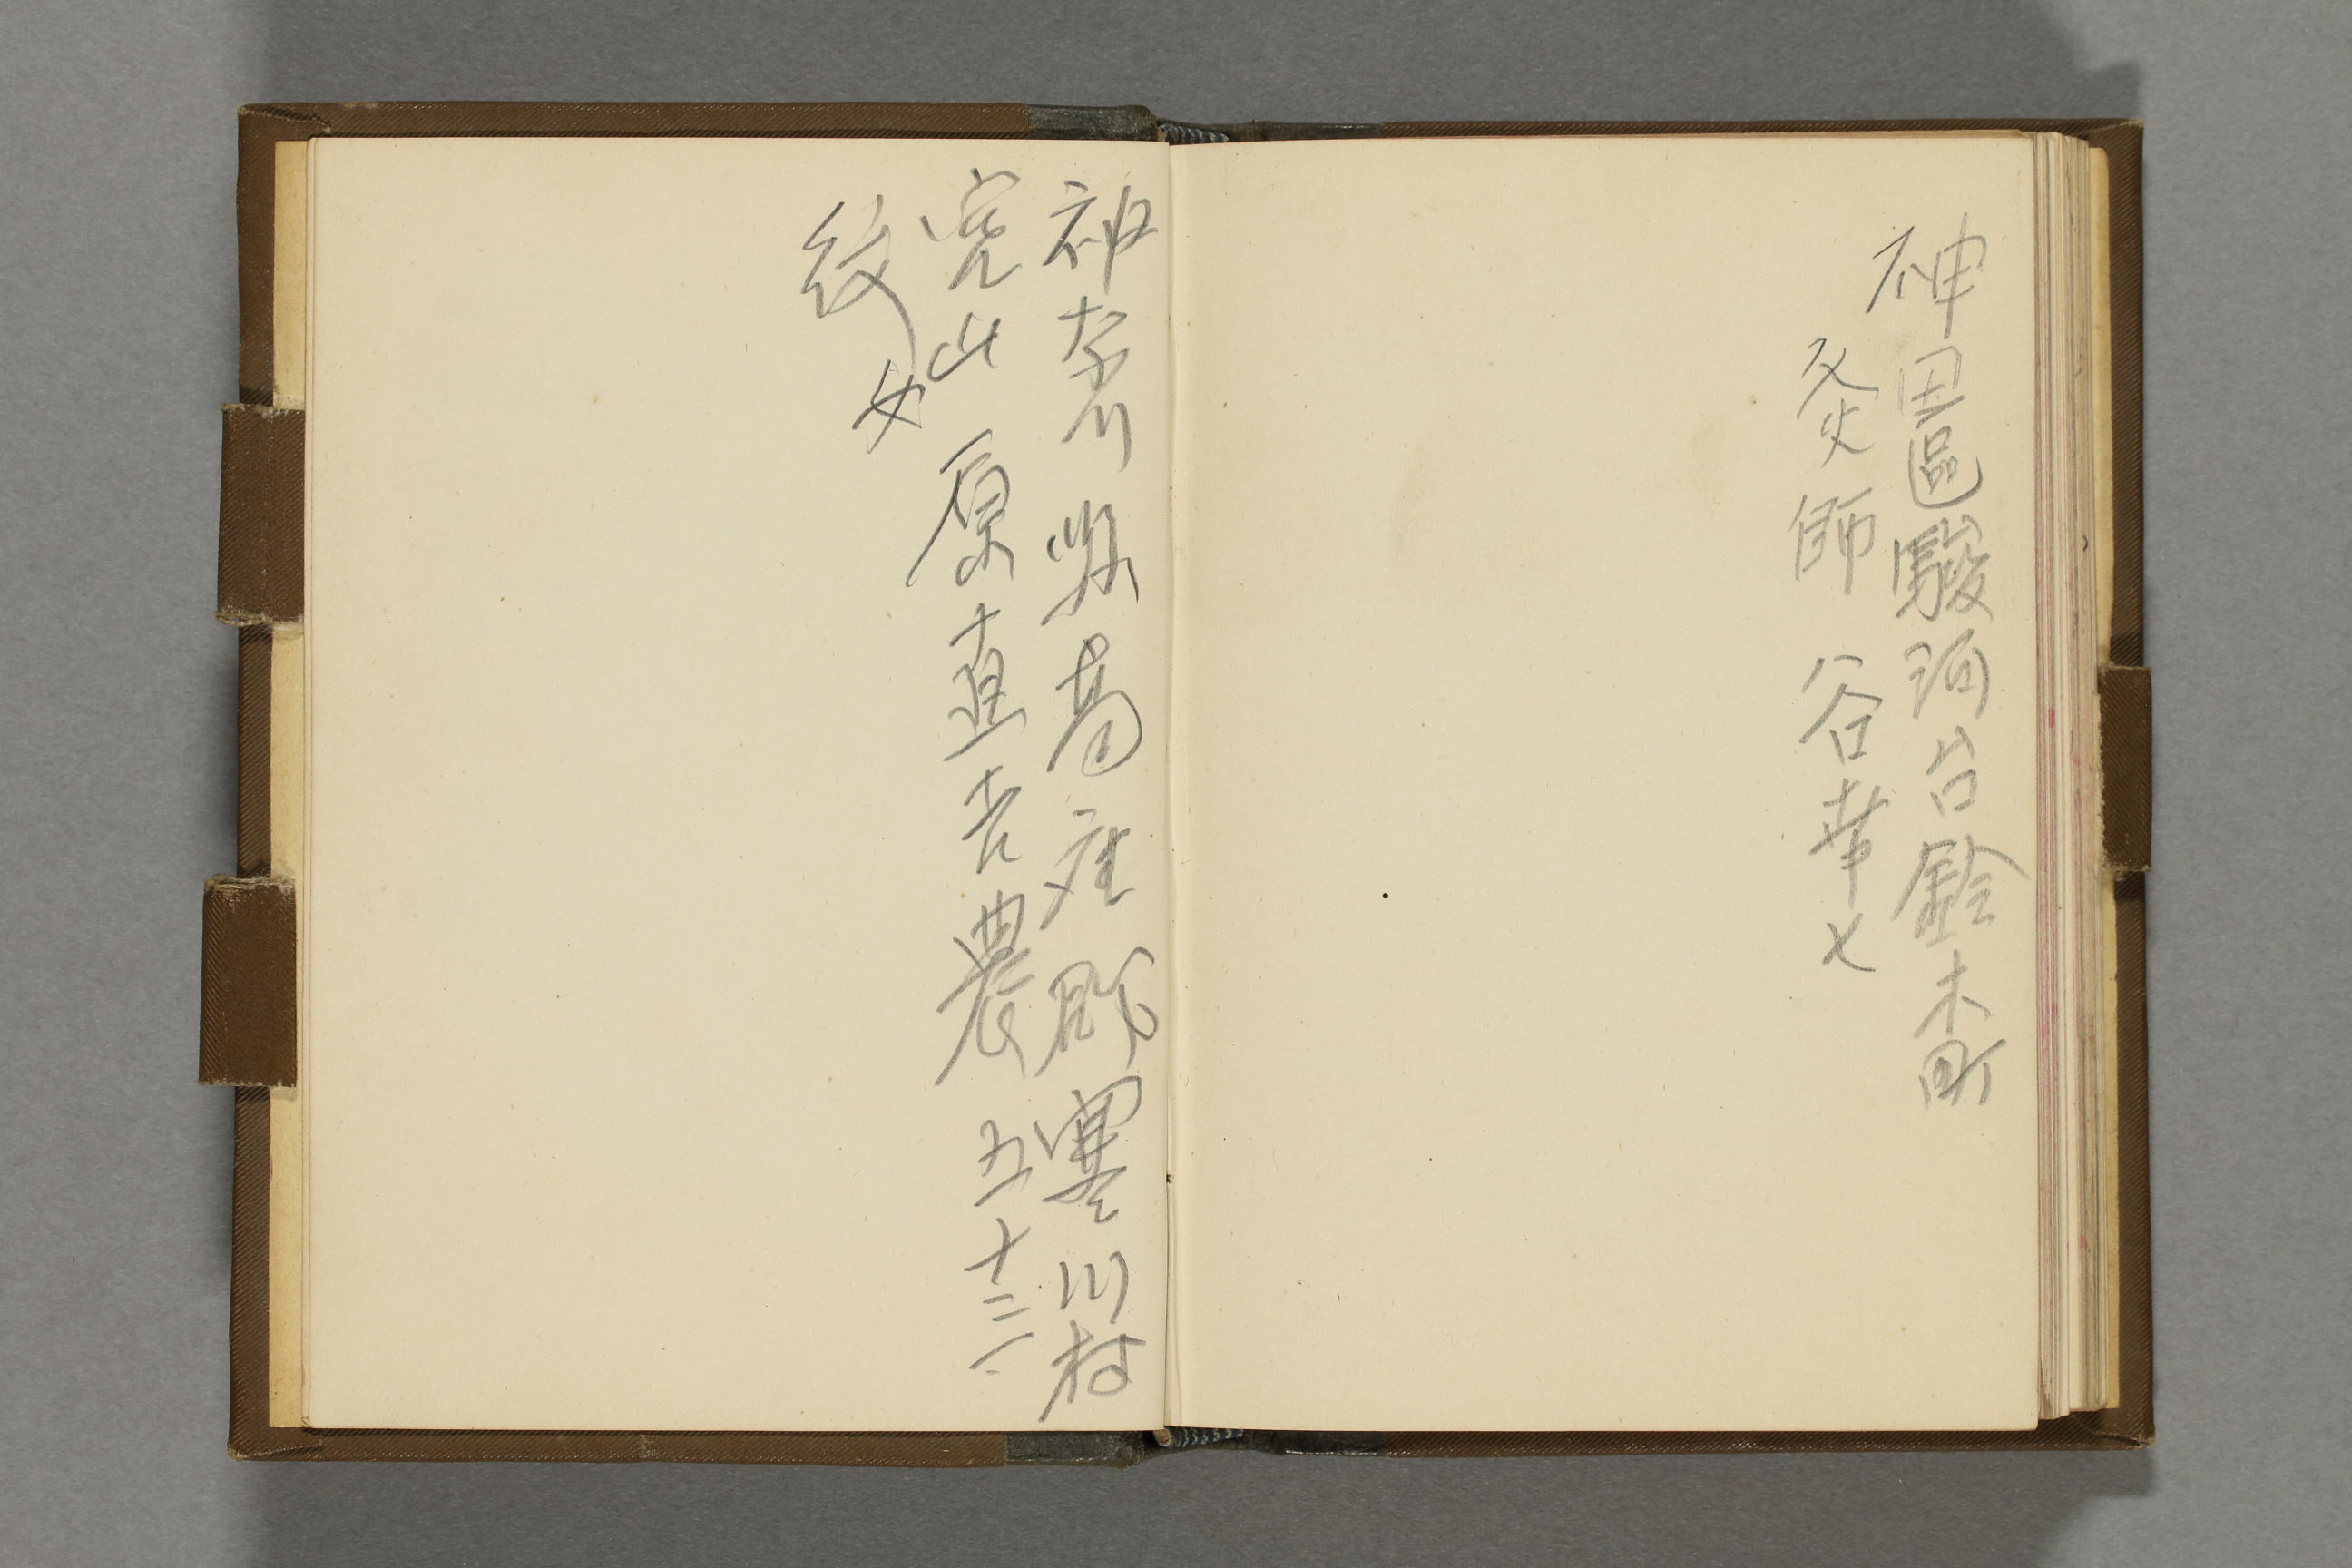 神田區駿河台鈴木町
灸師 谷幸七
神奈川縣高座郡寒川村
宮山 原直吉農 五十三
紋女